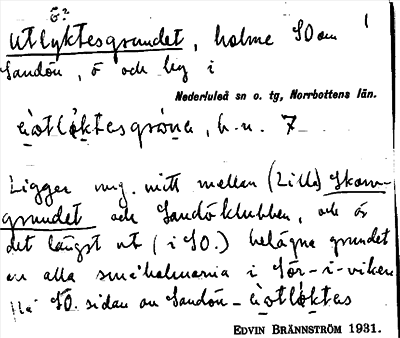 ö?
Utlyktesgrundet, holme SO om
Sandön, ö och by i
Nederluleå sn o. tg, Norrbottens län.
h.n. 7
Ligger ung. mitt mellan (Lilla) Skarv-
grundet och Sandöklubben, och är
det längst ut (i SO.) belägna grundet
av alla småholmarna i Sör-i-viken
på SO. sidan om Sandön
EDVIN BRÄNNSTRÖM 1931.